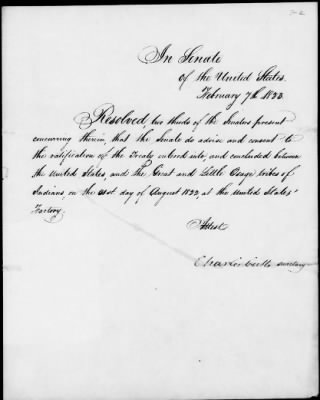 In Senate
of the United States.
February 7th 1823.
Resolved two thirds of the Senators present
concurring therein, that the Senate do advise and consent to
the ratification of the Treaty entered into, and concluded between
the United States, and the Great and Little Osage tribes of
Indians, on the 31st day of August 1822, at the United States'
Factory.
Attest
Charles Cutts Secretary